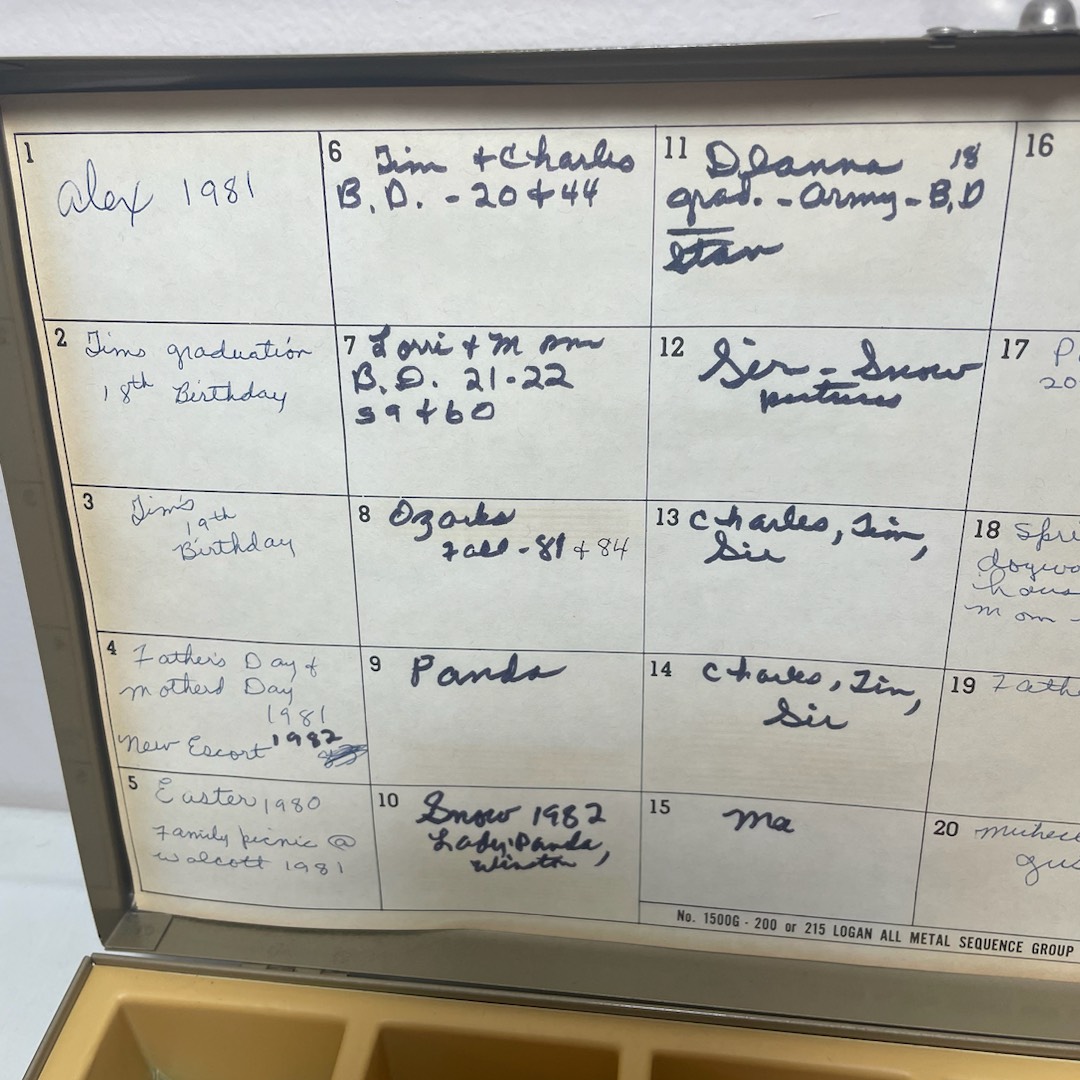 1
Alex 1981
2
Tims graduation
18th Birthday
3
Tim's
19th
Birthday
4
Father's Day &
Mothers Day
1981
New Escort 1982
5
Easter 1980
Family picnic @
Walcott 1981
6
Tim + Charles
B.D. - 20 + 44
7
Lorri + Mom
B.D. 21-22
59 + 60
8
Ozarks
Fall - 81 + 84
9
Panda
10
Snow 1982
Lady, Panda,
Winston
11
Deanna 18
grad. - Army - B,D
Stan
12
Sir - Snow
pictures
13
Charles, Tim,
Sir
14
Charles, Tim,
Sir
15
Ma
16
17
P
20
18
Spri
dogwo
hous
mom -
19
Fath
20
gus
No. 1500G - 200 or 215 LOGAN ALL METAL SEQUENCE GROUP